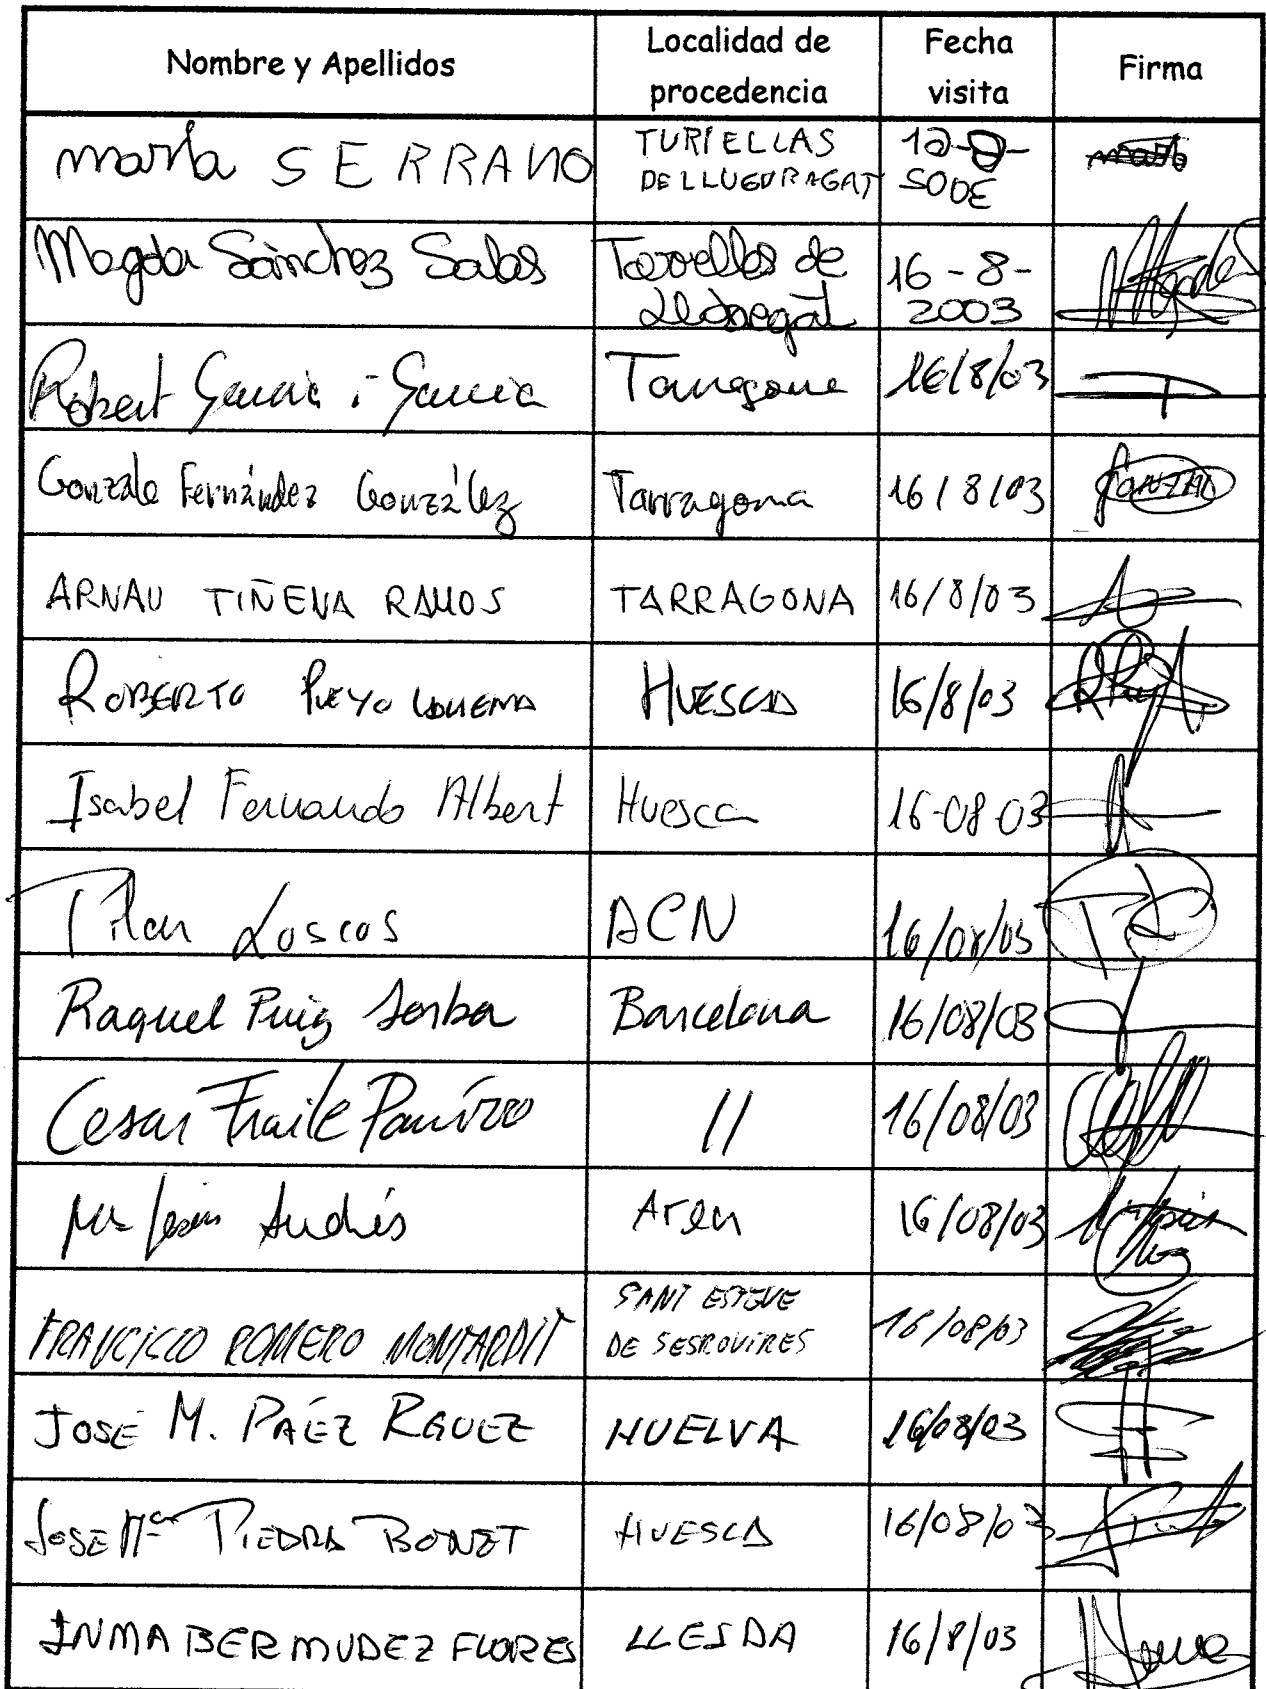 Nombre y Apellidos
Localidad de
procedencia
Fecha
visita
Firma
marta SERRANO
TURIELLAS
DE LLUGURAGAT
Magda Sánchez Salas
Torrelles de
Llobregat
16-8-
2003
Robert Garcia i Garcia
Tarragona
16/8/03
Gonzalo Fernández González
Tarragona
16/8/03
ARNAU TIÑENA RAMOS
TARRAGONA
16/8/03
ROBERTO PUEYO
HUESCA
16/8/03
Isabel Fernando Albert
Huesca
16-08-03
Pilar Loscos
ACN
16/08/03
Raquel Puig
Barcelona
16/08/03
Cesar Fraile
//
16/08/03
Mª Jesús Andrés
Aren
16/08/03
FRANCISCO ROMERO MONTARDIT
SANT ESTEVE
DE SESROVIRES
16/08/03
JOSÉ M. PÁEZ RGUEZ
HUELVA
16/08/03
JOSE Mª PIEDRA BONET
HUESCA
16/08/03
INMA BERMUDEZ FLORES
LLEIDA
16/8/03